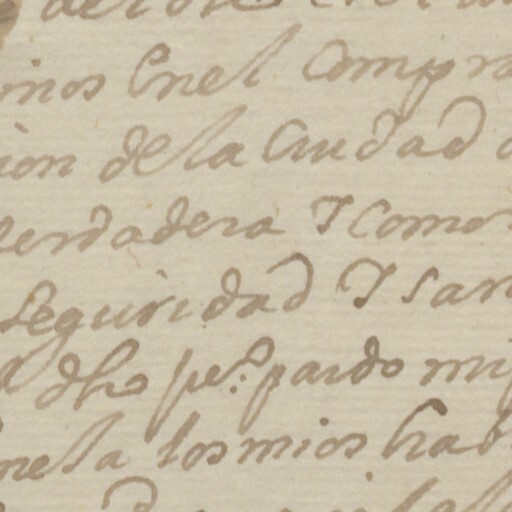 inos Enel Compra
ion de la Ciudad d
Verdadera Y Como
Seguridad Y San
dho pe.º pardo mi
nela los mios hab